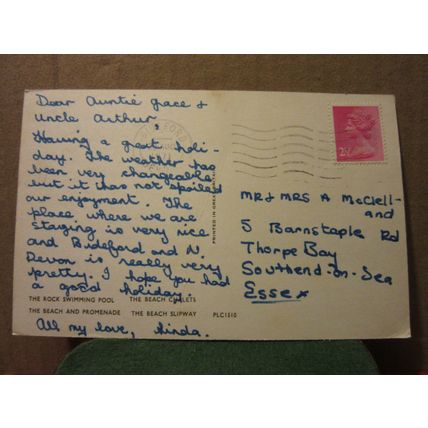 Dear Auntie Grace &
Uncle Arthur,
Having a great holi-
day. The weather has
been very changeable
but it has not spoiled
our enjoyment. The
place where we are
staying is very nice
and Bideford and N.
Devon is really very
pretty. I hope you had
a good holiday.
All my love, Linda.
THE ROCK SWIMMING POOL THE BEACH CHALETS
THE BEACH AND PROMENADE THE BEACH SLIPWAY PLC1510
MR & MRS A McClell-
and
5 Barnstaple Rd
Thorpe Bay
Southend-on-Sea
Essex